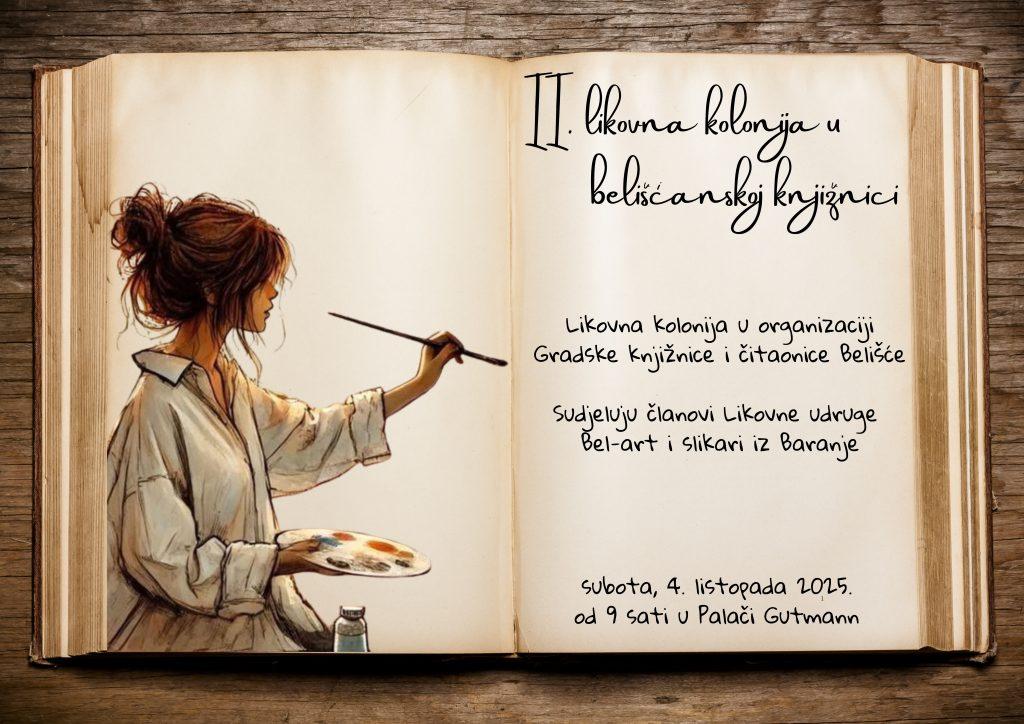 II. likovna kolonija u
belišćanskoj knjižnici
Likovna kolonija u organizaciji
Gradske knjižnice i čitaonice Belišće
Sudjeluju članovi Likovne udruge
Bel-art i slikari iz Baranje
subota, 4. listopada 2025.
od 9 sati u Palači Gutmann